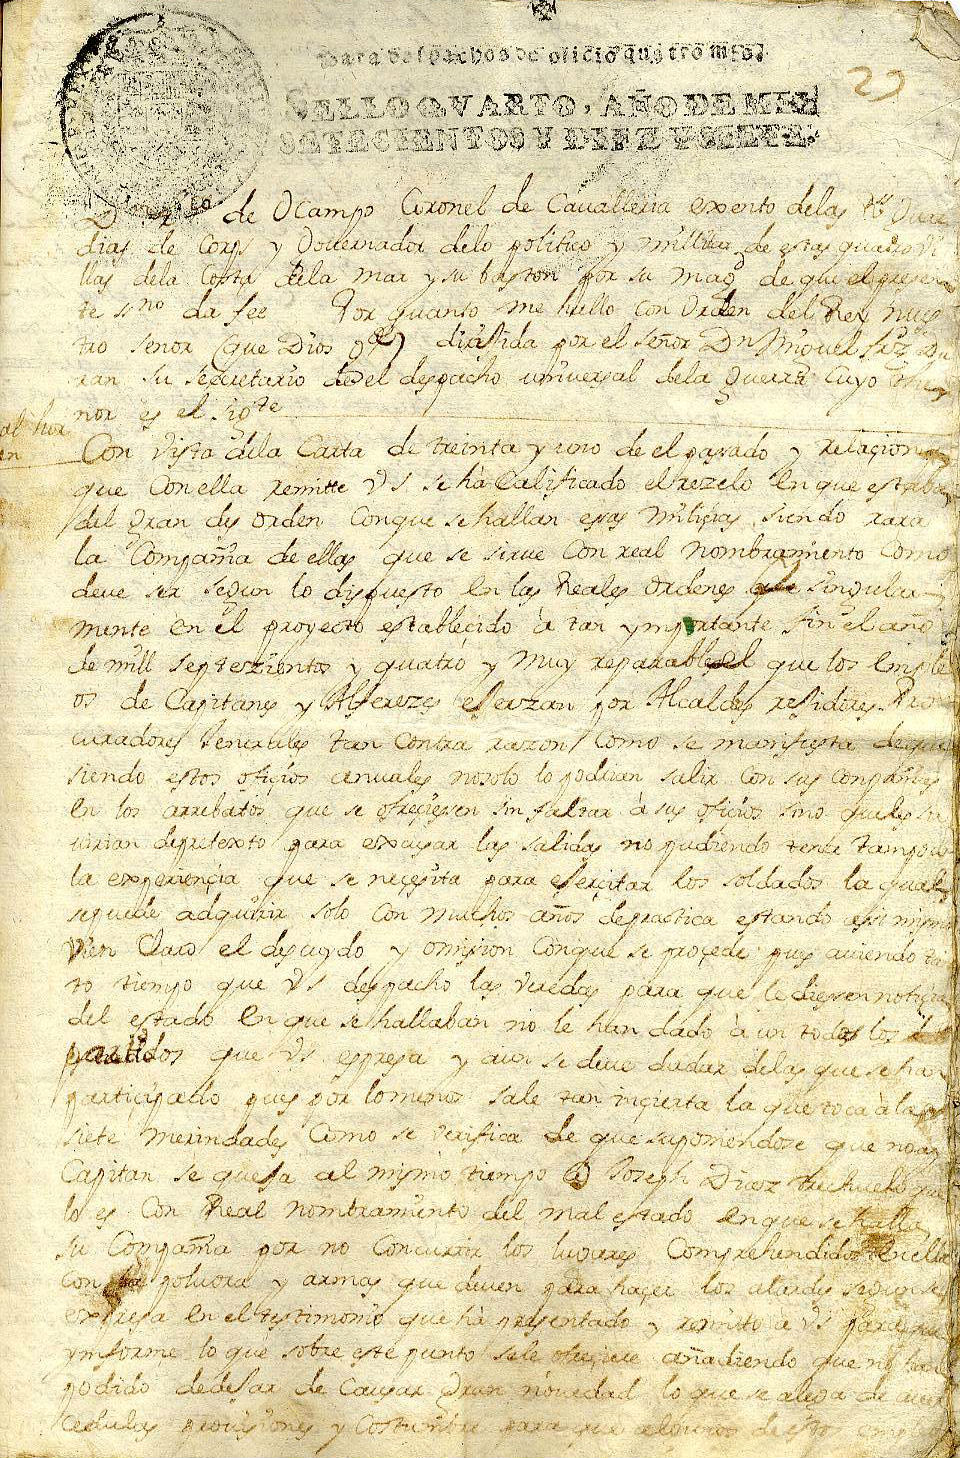 Para despachos de oficio quatro mrs.
SELLO QVARTO, AÑO DE MIL
SETECIENTOS Y DIEZ Y SIETE.
29
de Ocampo Coronel de Cavalleria exento delas Rs Guar
dias de Corps y Governador delo politico y militar de estas quatro Vi
llas dela Costa dela mar y su baston por su magd de que el presen
te sno da fee Por quanto me hallo con Orden del Rey nues
tro señor (que Dios gde) dirijida por el señor Dn Miguel frz Du
ran su secretario de el despacho universal dela Guerra cuyo the
nor es el sigte
Con vista dela Carta de treinta y uno de el pasado y relaciones
que Con ella remitte VS se ha Calificado el rezelo En que estaba
del gran des orden Conque se hallan esas Miligias siendo rara
la Compañia de ellas que se sirve Con real nombramiento Como
deve ser segun lo dispuesto En las Reales ordenes singular
mente En el proyecto establecido à tan ymportante fin el año
de mill septezientos y quatro y muy reparable el que los Emple
os de Capitanes y Alferezes esersan por Alcaldes rejidores Pro
curadores Generales tan contra razon Como se manifiesta de que
siendo estos ofiçios anuales no solo lo podrian salir con sus conpañias
En los arrebatos que se ofreçiesen sin faltar à sus ofiçios sino que les ser
virian depretexto para excusar las salidas no pudiendo tener tampoco
la experiençia que se neçesita para eserçitar los soldados la qual
sepuede adquirir solo con muchos años depractica estando assi mismo
vien Claro el descuydo y omision Conque se proçede pues aviendo tan
to tiempo que VS despacho las veredas para que le diesen notiçia
del estado En que se hallaban no le han dado à un todos los
partidos que VS espresa y aun se deve dudar delas que se han
participado pues por lo menos sale tan inçierta la que toca à las
siete merindades Como se verifica de que suponiendose que no ay
Capitan se quexa al mismo tiempo Dn Joseph Diaz que
lo es Con Real nombramiento del mal estado En que se halla
su Compañia por no Concurrir los lugares Comprehendidos En ella
Con la polvora y armas que deven para haçer los alardes segun se
expresa En el testimonio que hà presentado y remito à VS para que
ynforme lo que sobre este punto se le ofreçiere añadiendo que no ha
podido dedejar de Causar gran novedad lo que se alega de aver
Cedulas provisiones y Costumbre para que algunos de estos empleos